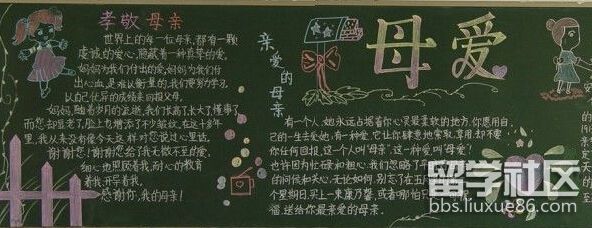 孝敬母亲
世界上的每一位母亲,都有一颗
虔诚的爱心,隐藏着一种真挚的爱,
妈妈为我们付出的爱,妈妈为我们付
出心血,是难以衡量的,我们要努力学习,
以自己优异的成绩来回报父母。
妈妈,随着岁月的流逝,我们长高了,长大了,懂事了
而您却显老了,脸上也增添了不少皱纹,在这十多年
里,我从来没有像今天这样对您说过心里话,
谢谢您!谢谢您给了我无微不至的爱,
细心地照顾着我,耐心的教育
着我,开导着我,
感谢你,我的母亲!
亲爱的母亲
母爱
有一个人,她永远占据着你心灵最柔软的地方,你愿用自
己的一生去爱她,有一种爱,它让你肆意地索取、享用,却不要
你任何回报,这一个人叫"母亲",这一种爱叫"母爱"!
也许因为忙碌和粗心,我们忽略了
的问候和关心,无论如何,别忘了在五月
个星期日,买上一束康乃馨,或者哪怕只
语,送给你最亲爱的母亲.
留学社区
bbs.liuxue86.com